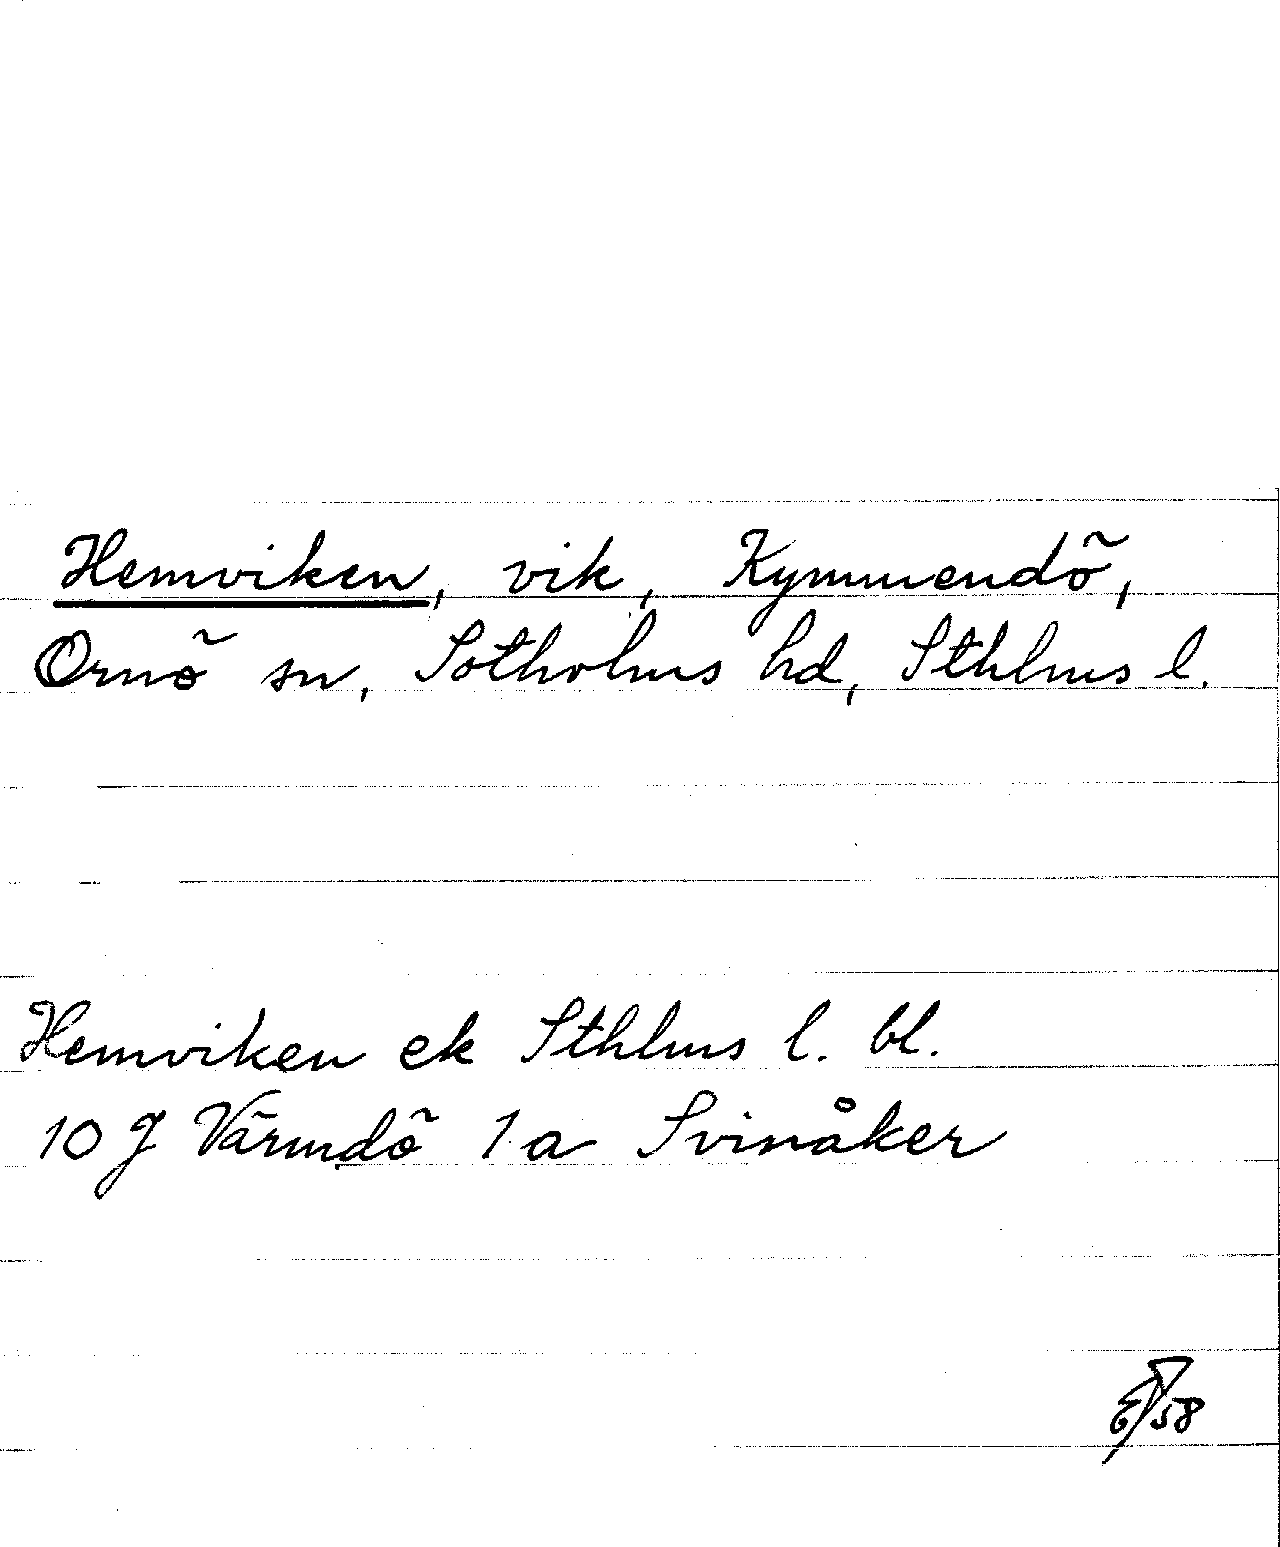 Hemviken, vik, Kymmendö,
Ornö sn, Sotholms hd, Sthlms l.
Hemviken ek Sthlms l. bl.
10 J Värmdö 1 a Svinåker
58